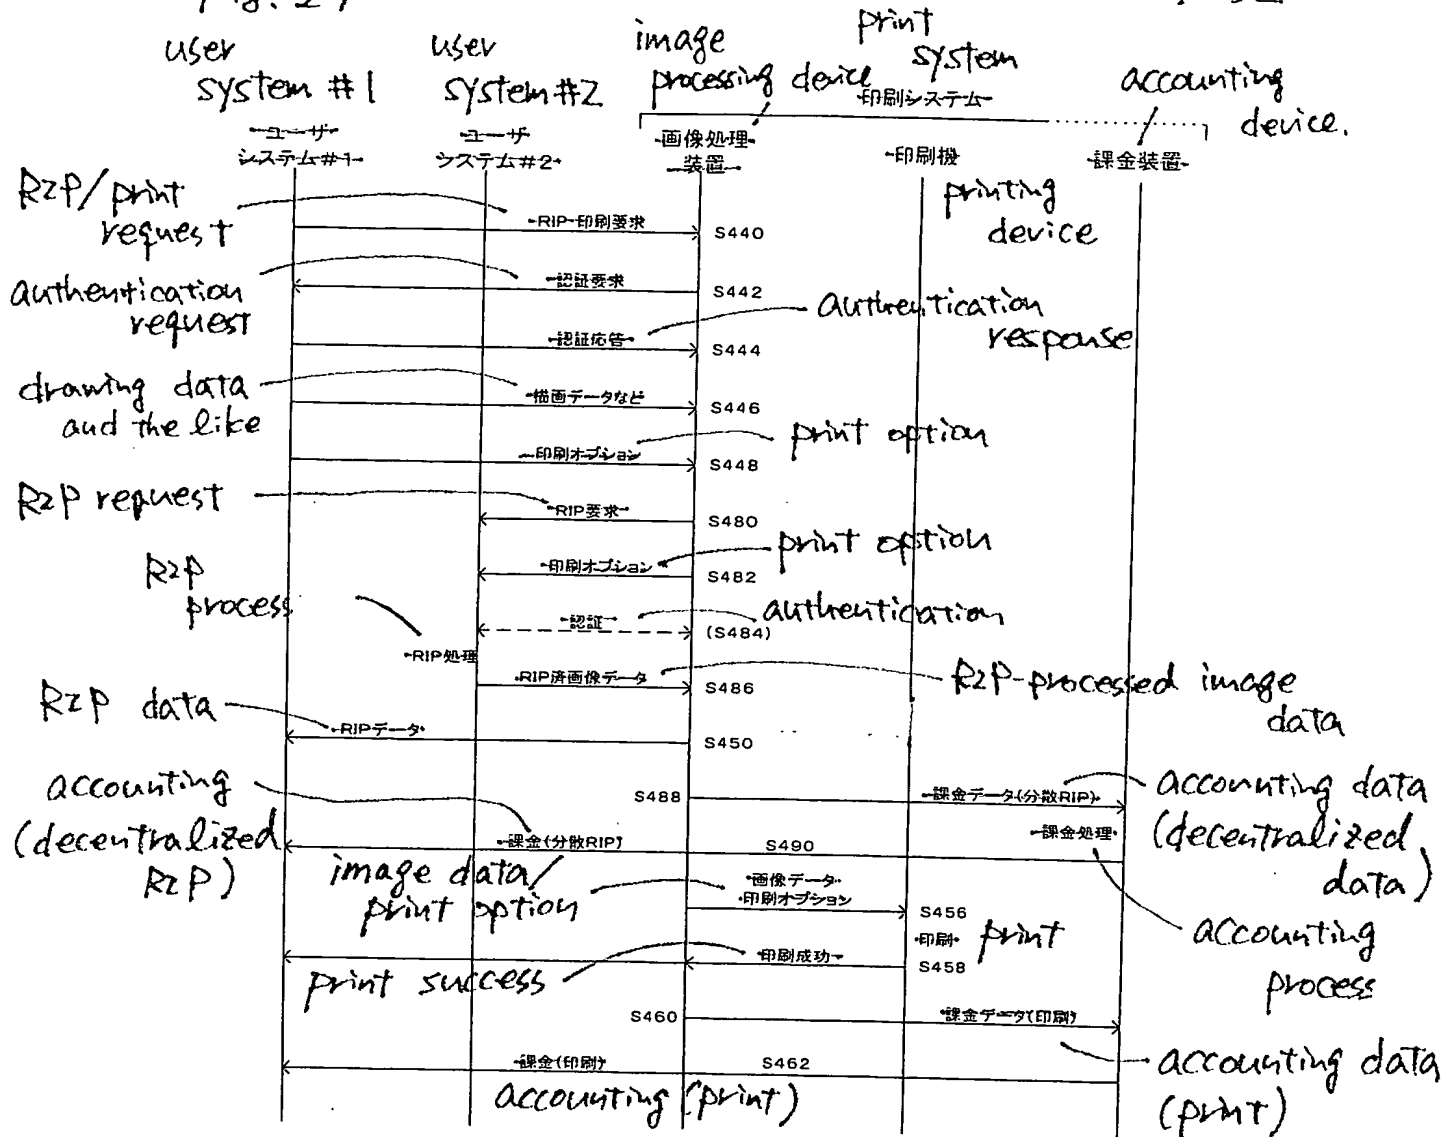 user
system #1
user
system #2
image
processing device
print
system
accounting
device.
印刷システム
ユーザ
システム#1
ユーザ
システム#2
画像処理
装置
印刷機
課金装置
printing
device
RIP/print
request
RIP印刷要求
S440
authentication
request
認証要求
S442
認証応答
S444
authentication
response
drawing data
and the like
描画データなど
S446
印刷オプション
S448
print option
RIP request
RIP要求
S480
印刷オプション
S482
print option
RIP
process
認証
(S484)
authentication
RIP処理
RIP済画像データ
S486
RIP-processed image
data
RIP data
RIPデータ
S450
accounting
(decentralized
RIP)
S488
課金データ(分散RIP)
accounting data
(decentralized
data)
課金処理
課金(分散RIP)
S490
accounting
process
image data/
print option
画像データ
印刷オプション
S456
印刷
print
印刷成功
S458
print success
S460
課金データ(印刷)
accounting data
(print)
課金(印刷)
S462
accounting (print)